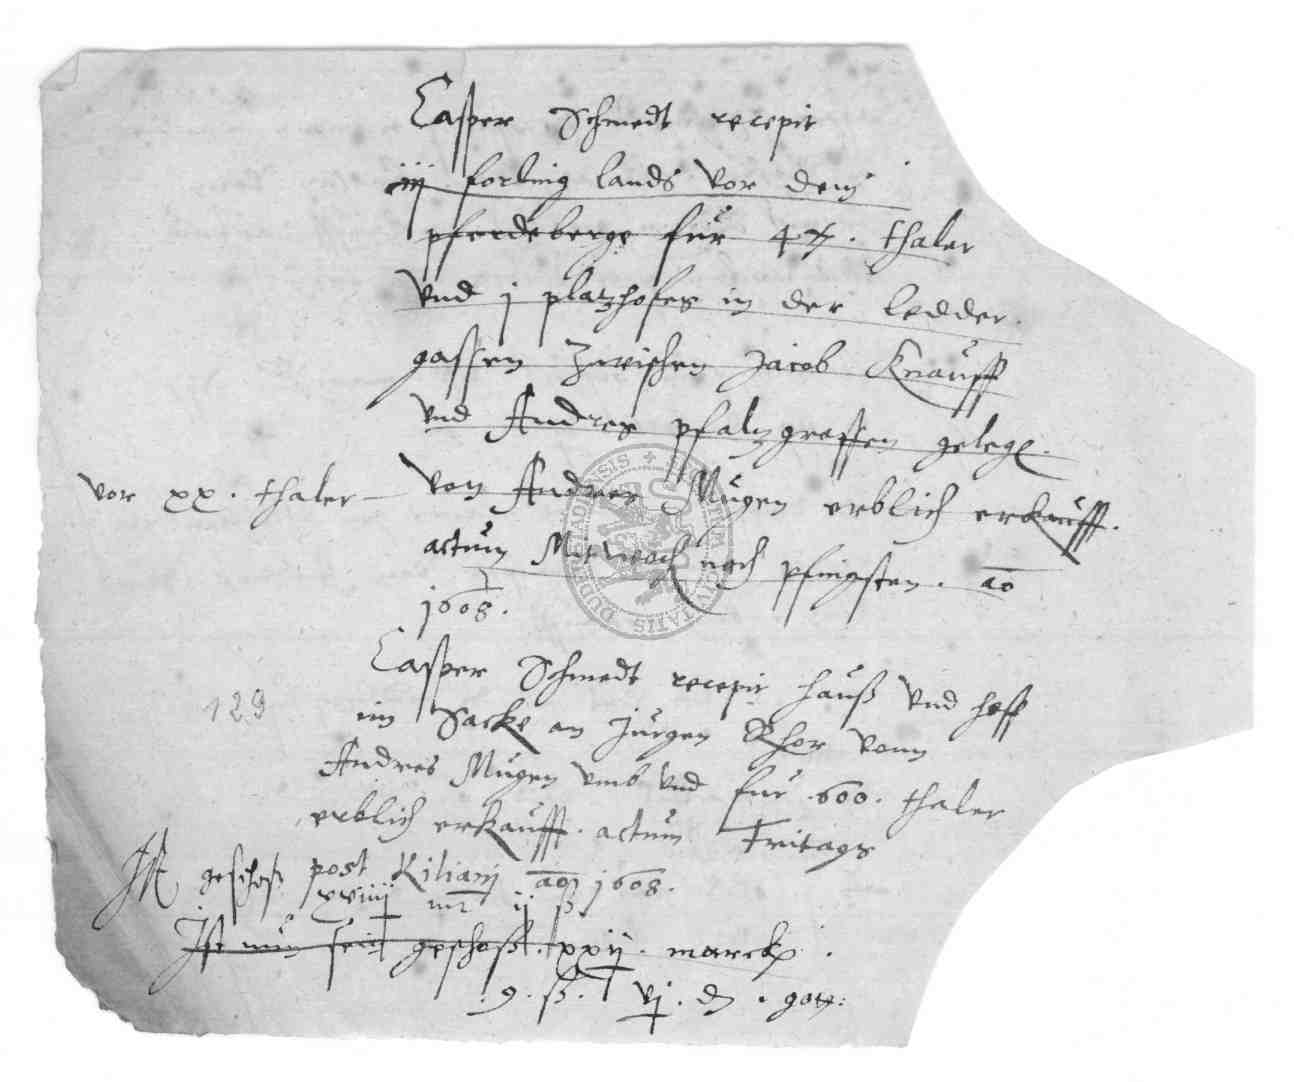 Casper Schmedt recepit
iij forling lands vor dem
pferdeberge für 47. thaler
vnd j platzhofes in der ledder
gassen Zwischen Jacob Knauff
vnd Andres pfaltzgreffen geleg.
vor xx. thaler von Andres Mugen erblich erkaufft.
actum Mitwoch nach pfingsten. ao
1608.
Casper Schmedt recepit hauß vnd hoff
129
im Sacke an Jürgen Rhor vonn
Andres Mugen vmb vnd für .600. thaler
erblich erkaufft. actum Fritags
post Kiliani ao 1608.
Ist geschoß xviiij mr ij ß
Ist nun sein geschoß. xxij. marck.
.9. ß. vj. d. gott:
SIGILLUM CIVITATIS DUDERSTADIENSIS